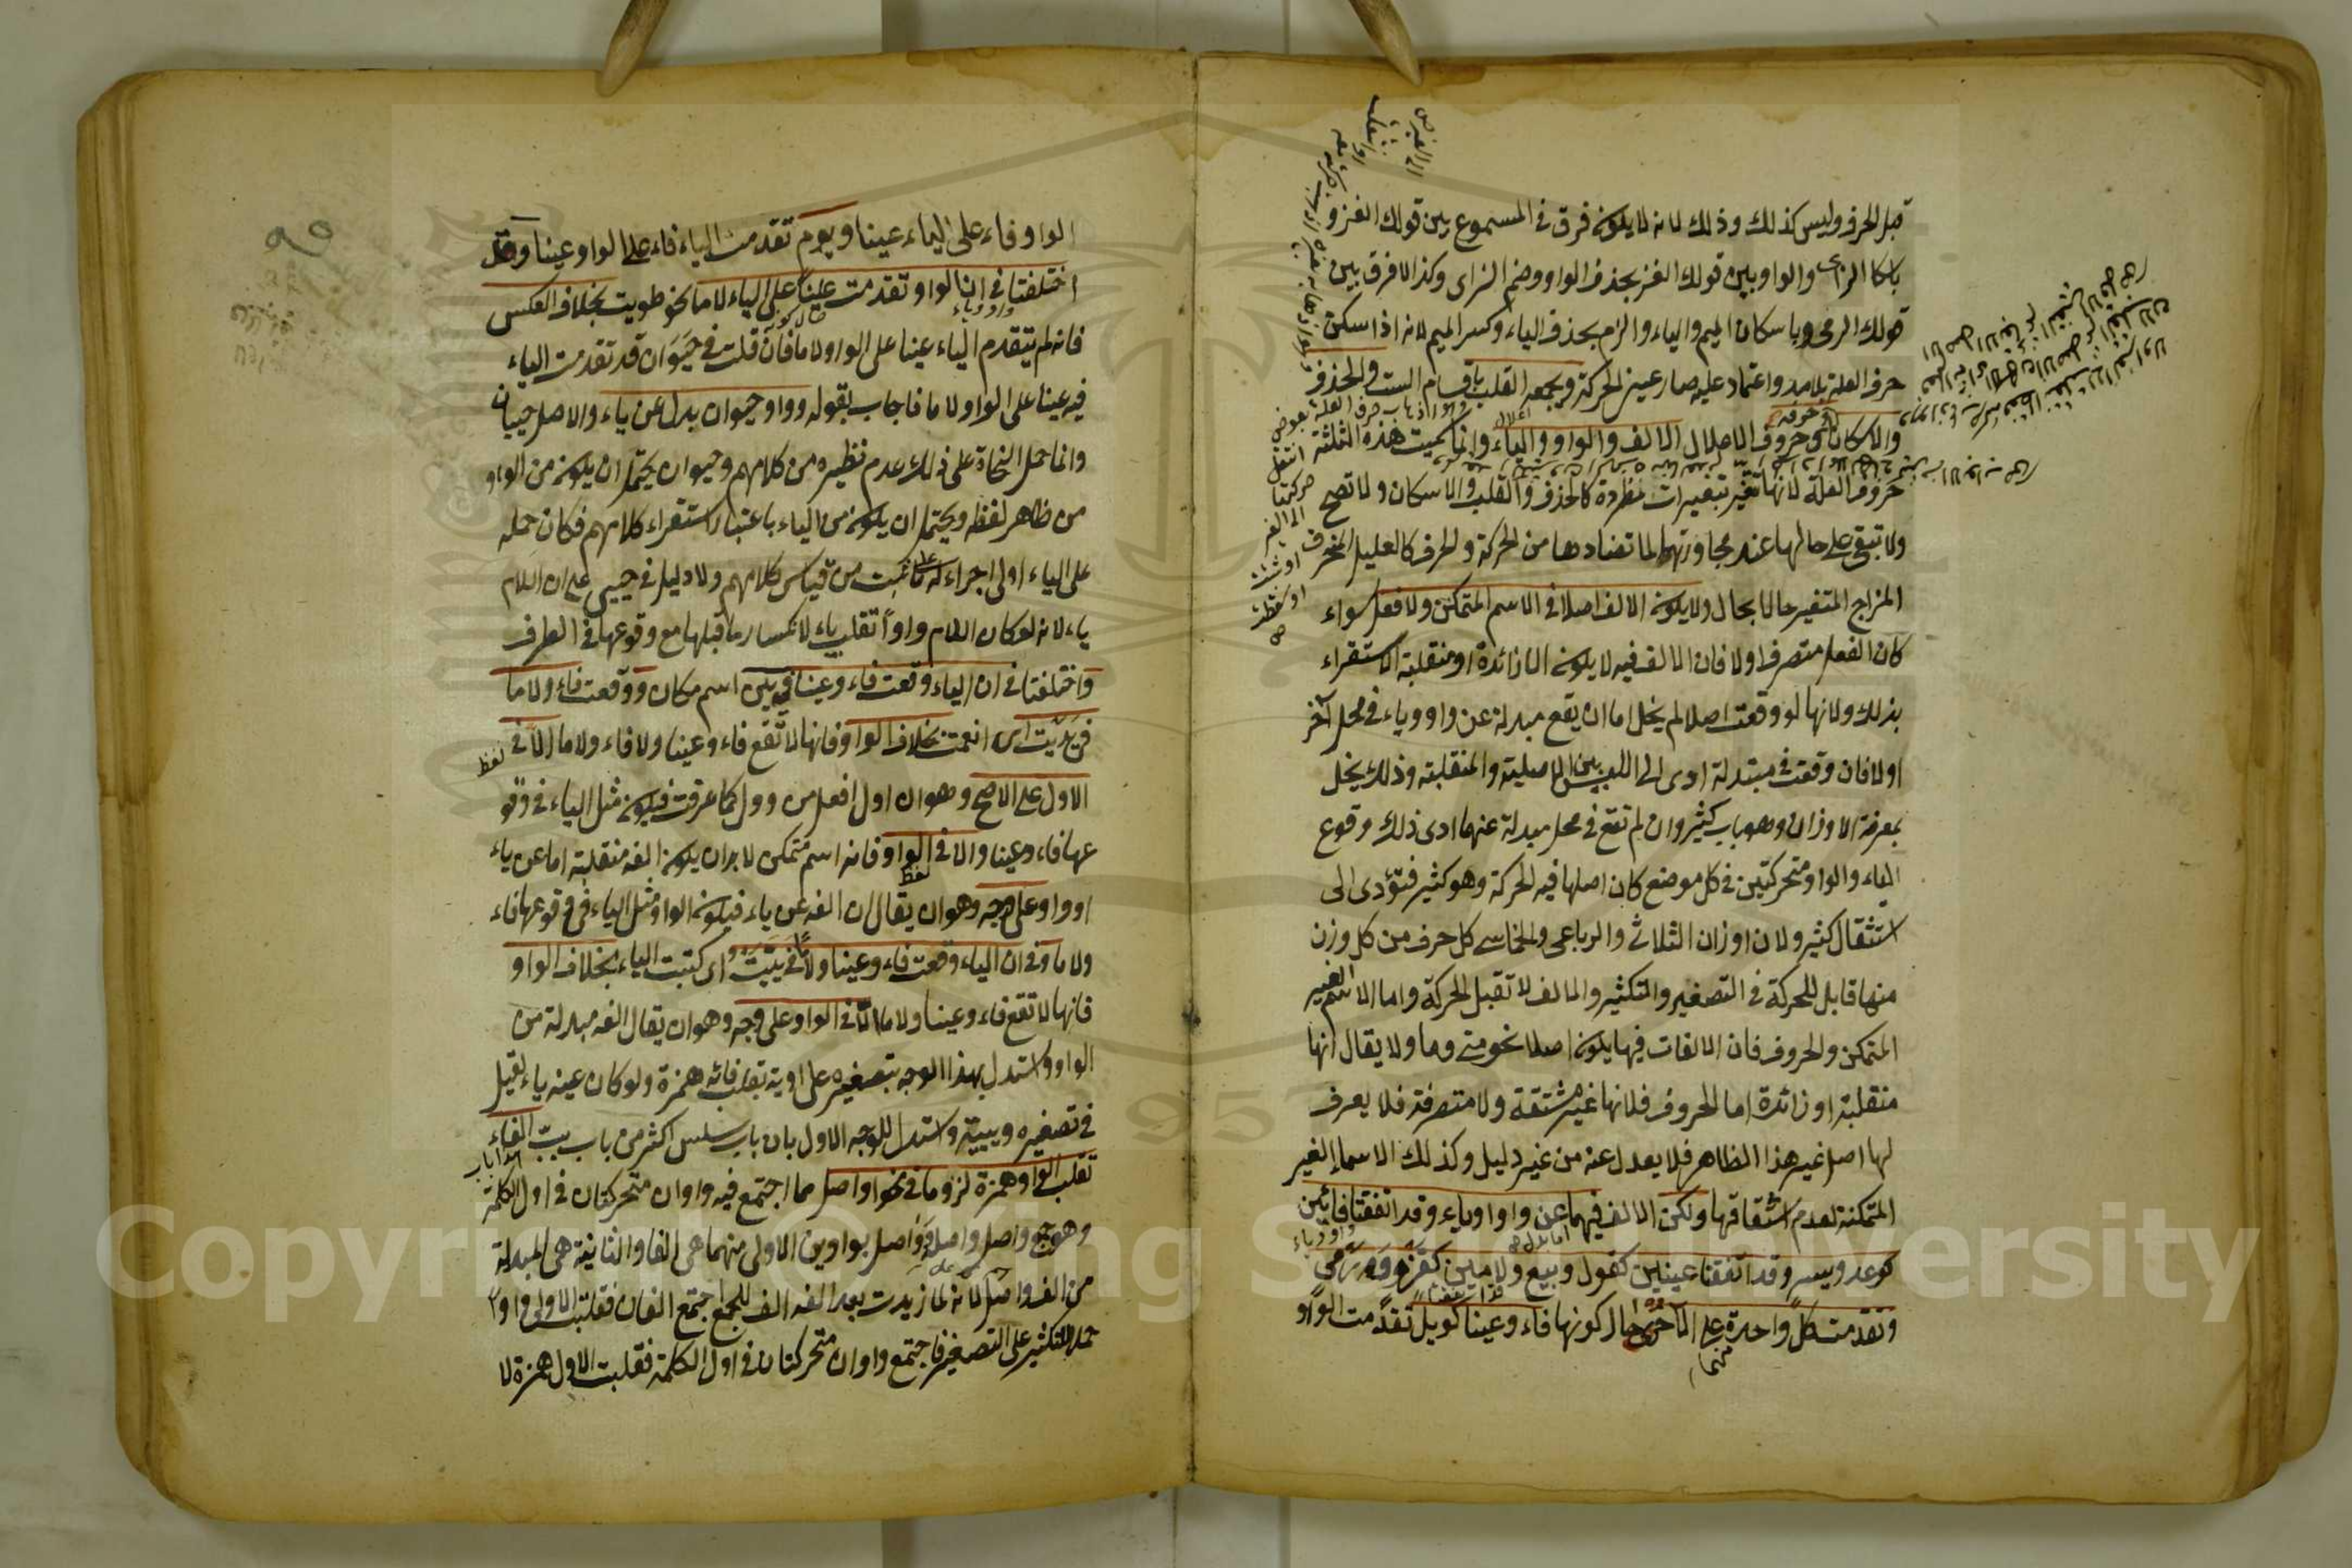 قبل الحرف وليس كذلك وذلك لانه لا يكون فرق في المسموع بين قولك الغزو
باسكان الزاي والواو وبين قولك الغز بحذف الواو وضم الزاى وكذا لا فرق بين
قولك الرمى وباسكان الميم والياء والرم بحذف الياء وكسر الميم لانه اذا سكن
حرف العلة بلا مد واعتماد عليه صار عين الحركة ويجمعه القلب باقسامه الست والحذف
والاسكان وحروف الاعلال الالف والواو والياء وانما سميت هذه الثلثة
حروف العلة لانها تتغير بتغييرات مطردة كالحذف والقلب والاسكان ولا تصح
ولا تبقى على حالها عند مجاورتها لما تضادها من الحركة والحرف كالعليل المنحرف
المزاج المتغير حالا بحال ولا يكون الالف اصلا في الاسم المتمكن ولا فعل سواء
كان الفعل متصرفا او لا فان الالف فيه لا يكون الا زائدة او منقلبة الاستقراء
بذلك ولانها لو وقعت اصلا لم يخل اما ان يقع مبدلة عن واو وياء في محل آخر
او لا فان وقعت مبتدلة ادى الى اللبس بين الاصلية والمنقلبة وذلك يخل
بمعرفة الاوزان وهو باب كثير وان لم تقع في محل مبدلة عنهما ادى ذلك وقوع
الياء والواو متحركتين في كل موضع كان اصلها فيه الحركة وهو كثير فتؤدى الى
استثقال كثير ولان اوزان الثلاثي والرباعى والخماسى كل حرف من كل وزن
منها قابل للحركة في التصغير والتكثير والالف لا تقبل الحركة واما الاسم الغير
المتمكن والحروف فان الالفات فيها يكون اصلا نحو متى وما ولا يقال انها
منقلبة او زائدة اما الحروف فلانها غير مشتقة ولا متصرفة فلا يعرف
لها اصل غير هذا الظاهر فلا يعدل عنه من غير دليل وكذلك الاسماء الغير
المتمكنة لعدم اشتقاقها ولكن الالف فيهما عن واو او ياء وقد اتفقتا فائين
كوعد ويسر وقد اتفقتا عينين كقول وبيع ولامين كغزو ورمي
وتقدمت كل واحدة على الاخرى حال كونها فاء وعينا كويل تقدمت الواو
الواو فاء على الياء عينا ويوم تقدمت الياء فاء على الواو عينا وقد
اختلفتا في ان الواو تقدمت عينا على الياء لاما نحو طويت بخلاف العكس
فانه لم يتقدم الياء عينا على الواو لاما فان قلت في حيوان قد تقدمت الياء
فيه عينا على الواو لاما فاجاب بقوله وواو حيوان بدل عن ياء والاصل حييان
وانما حمل النحاة على ذلك عدم نظيره من كلامهم وحيوان يحتمل ان يكون من الواو
من ظاهر لفظه ويحتمل ان يكون من الياء باعتبار استقراء كلامهم فكان حمله
على الياء اولى اجراء له على ما ثبت من قياس كلامهم ولا دليل في حيي على ان اللام
ياء لانه لو كان اللام واوا تقلب ياء لانكسار ما قبلها مع وقوعها في الطرف
واختلفتا في ان الياء وقعت فاء وعينا في يين اسم مكان ووقعت فاء ولاما
في يديت اى انعمت بخلاف الواو فانها لا تقع فاء وعينا ولا فاء ولاما الا في لفظ
الاول على الاصح وهو ان اول افعل من وول كما عرفت فيكون مثل الياء في وقو
عها فاء وعينا والا في لفظ الواو فانه اسم متمكن لا بد ان يكون الفه منقلبة اما عن ياء
او واو على وجه وهو ان يقال ان الفه عن ياء فيكون الواو مثل الياء في وقوعها فاء
ولاما وفي ان الياء وقعت فاء وعينا ولاما في ييت اى كتبت الياء بخلاف الواو
فانها لا تقع فاء وعينا ولاما الا في الواو على وجه وهو ان يقال الفه مبدلة من
الواو واستدل بهذا الوجه بتصغيره على اوية بقلب فائه همزة ولو كان عينه ياء لقيل
في تصغيره وييية واستدل للوجه الاول بان باب سلس اكثر من باب ببت الفاء
تقلب الواو همزة لزوما في نحو اواصل مما اجتمع فيه واوان متحركتان في اول الكلمة
وهو جمع واصل واصله وواصل بواوين الاولى منهما هى الفا والثانية هى المبدلة
من الف واصل لانه لما زيدت بعد الفه الف للجمع اجتمع الفان فقلبت الاولى واوا
حملا للتكثير على التصغير فاجتمع واوان متحركتان في اول الكلمة فقلبت الاول همزة لا
Copyright © King Saud University